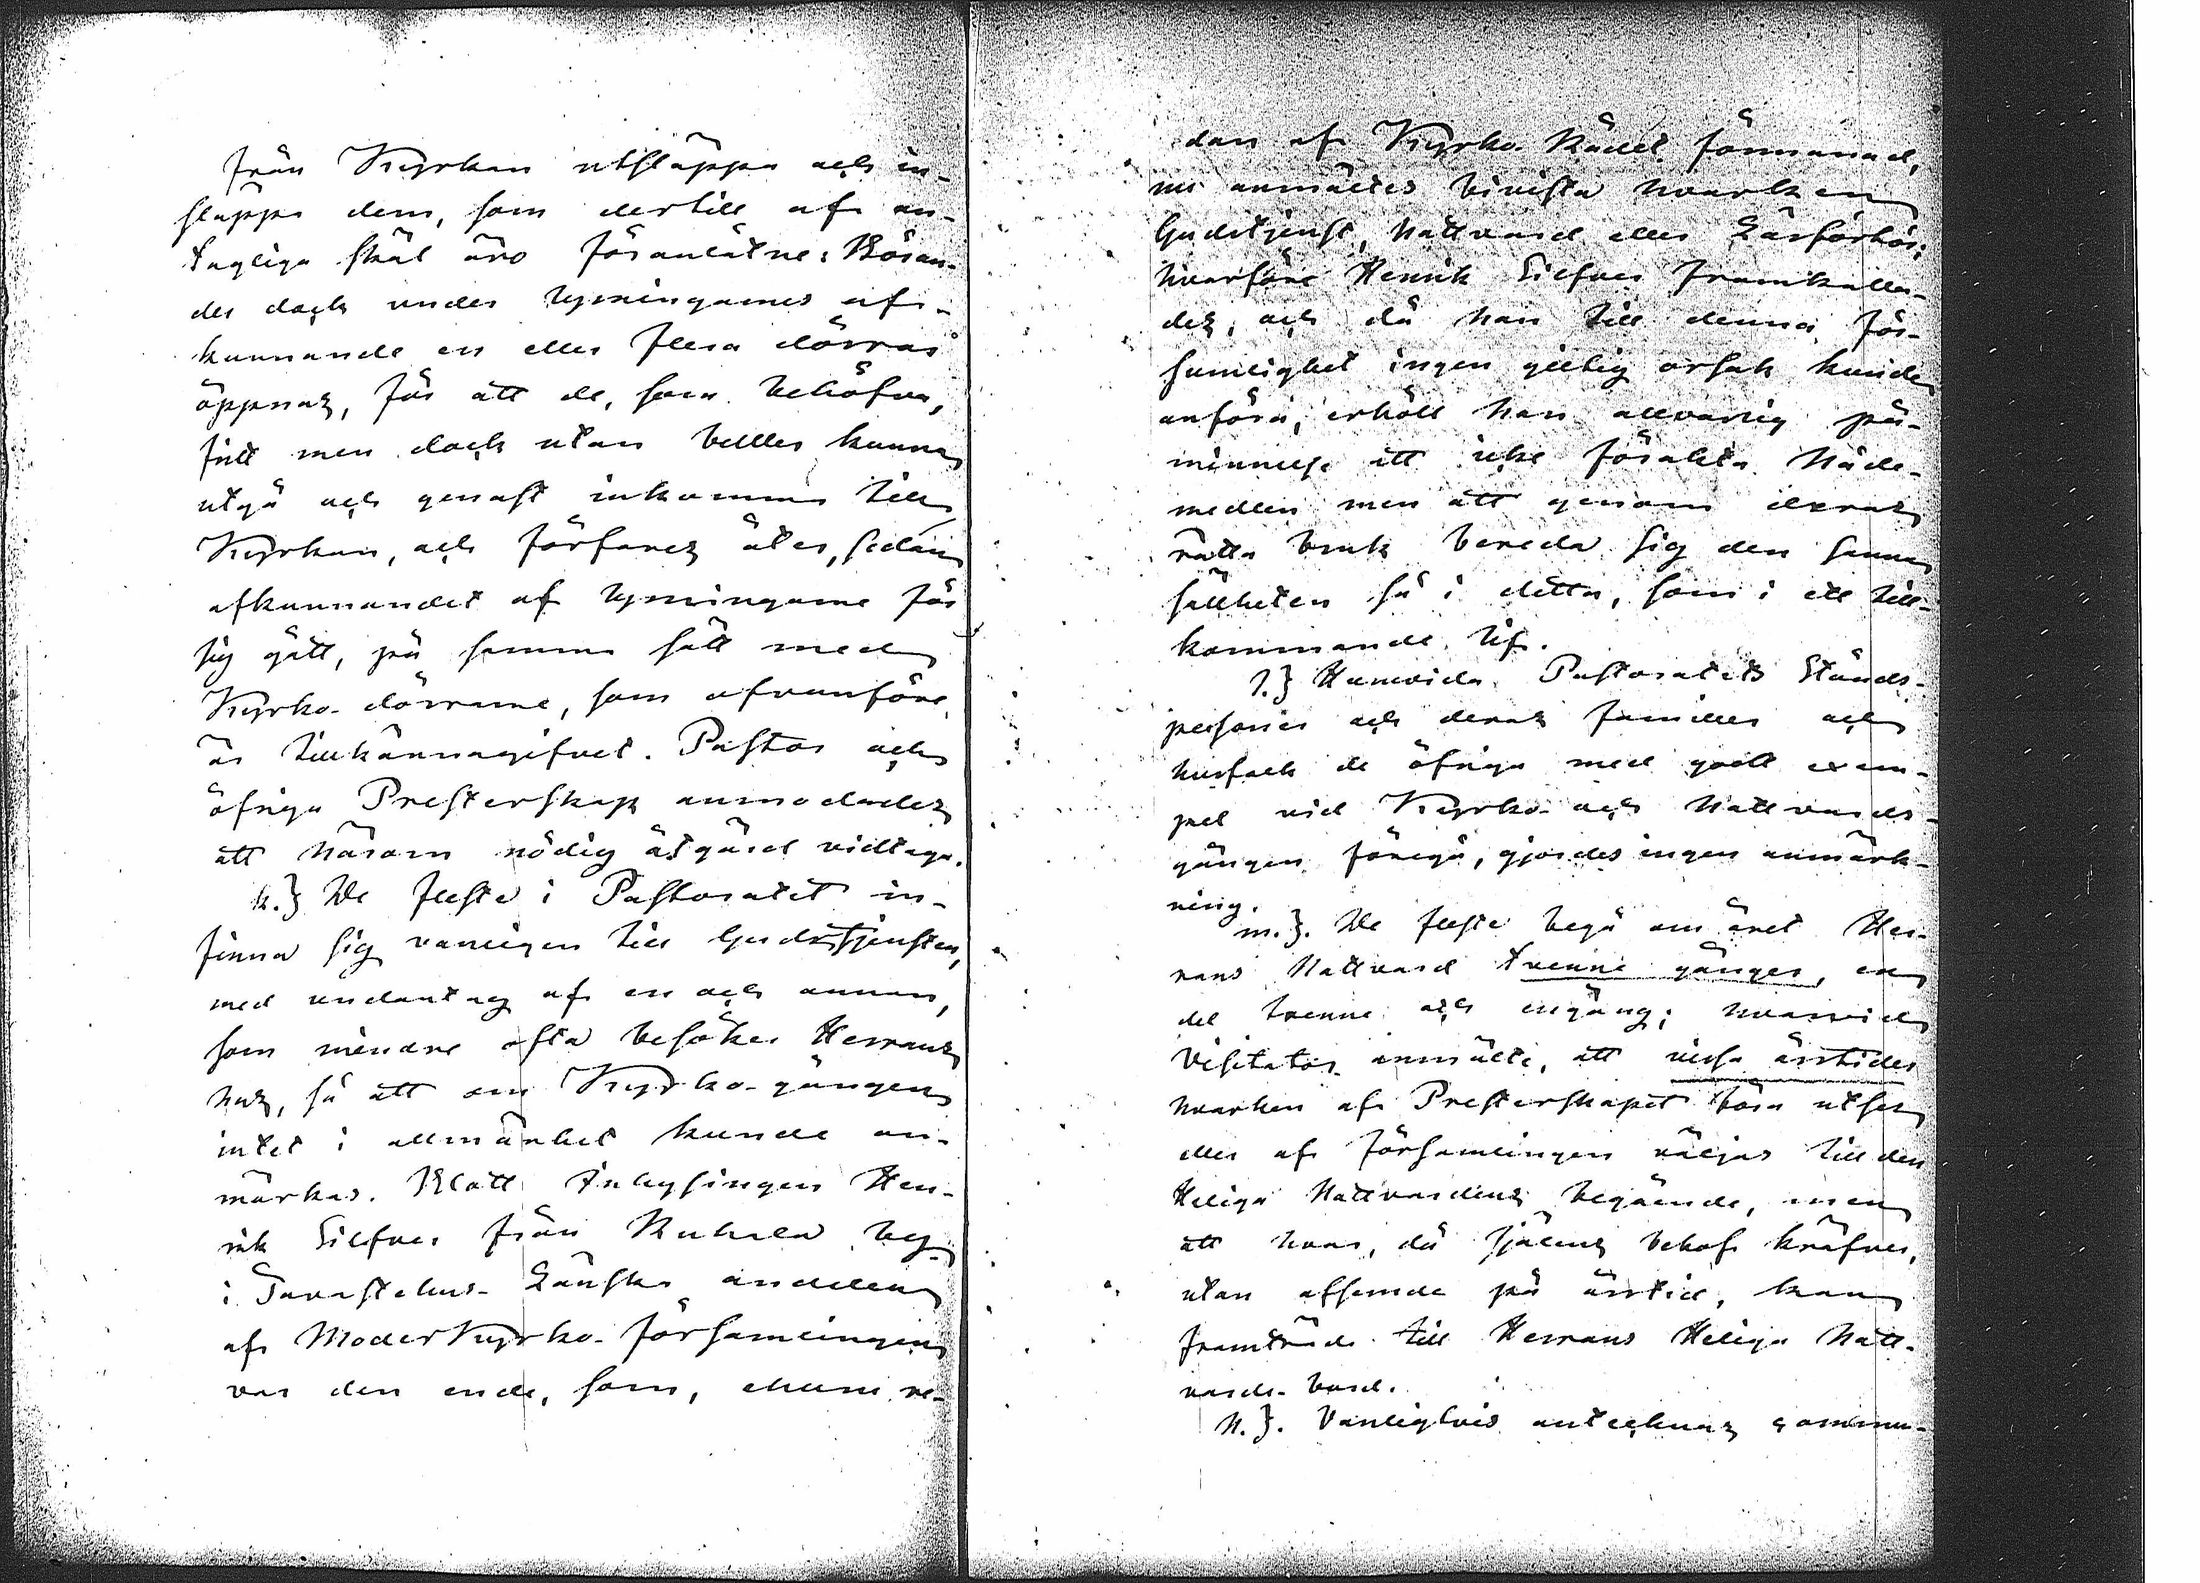 från Kyrkan utsläppa och in-
släppa dem, som dertill af an-
tagliga skäl äro föranlåtne: Böran-
des dock under lysningarnes af-
kunnande en eller flera dörrar
öppnas, för att de, som behöfva,
fritt men dock utan buller kunna
utgå och genast inkomma till
Kyrkan, och förfares åter, sedan
afkunnandet af lysningarne för
sig gått, på samma sätt med
Kyrko-dörrarne, som ofvanföre
är tillkännagifvet. Pastor och
öfriga Presterskap anmodades
att härom nödig åtgärd vidtaga.
k.} De fleste i Pastoratet in-
finna sig vanligen till Gudstjensten,
med undantag af en och annan,
som mindre ofta besöker Herrans
hus, så att om Kyrko-gången
intet i allmänhet kunde an-
märkas. Blott Inhysingen Hen-
rik Silfver från by
i Tavastehus-Länska andelen
af Moderkyrko-församlingen
var den ende, som, ehuru re-
dan af Kyrko-Rådet förmanad,
nu anmältes bivista hvarken
Gudstjenst, Nattvard eller Läsförhör;
hvarföre Henrik Silfver framkalla-
des, och då han till denna för-
sumlighet ingen giltig orsak kunde
anföra, erhöll han allvarlig på-
minnelse att icke förakta Nåde-
medlen men att genom deras
rätta bruk bereda sig den sanna
sällheten så i detta, som i ett till-
kommande lif.
l.} Huruvida Pastoratets Stånds-
personer och deras familier och
husfolk de öfriga med godt exem-
pel vid Kyrko- och Nattvards-
gången föregå, gjordes ingen anmärk-
ning.
m.}. De fleste begå om året Her-
rans Nattvard tvenne gånger, en
del trenne och engång; hvarvid
Visitator anmälte, att vissa årstider
hvarken af Presterskapet böra utses
eller af församlingen väljas till den
Heliga Nattvardens begående, men
att hvar, då själens behof kräfver,
utan afseende på årstid, kan
framträda till Herrans Heliga Natt-
vards-bord.
n.}. Vanligtvis antecknas commu-